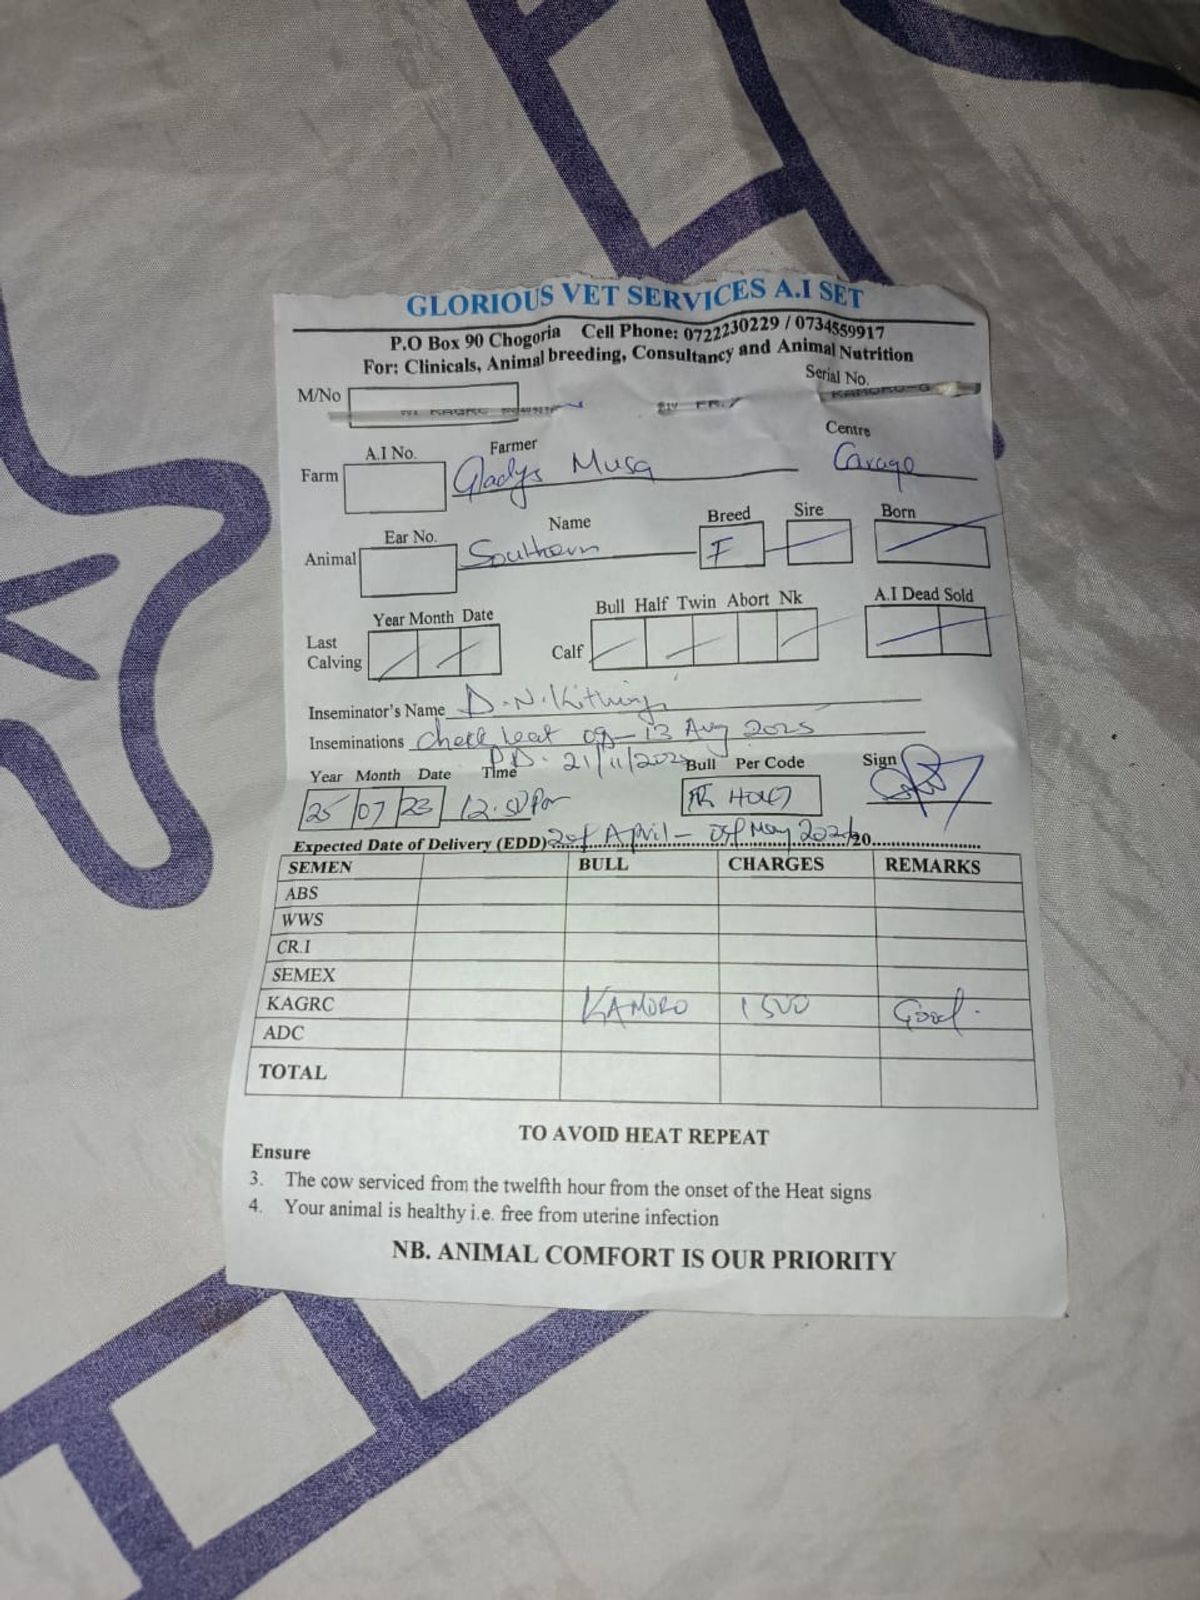 GLORIOUS VET SERVICES A.I SET
P.O Box 90 Chogoria Cell Phone: 0722230229 / 0734559917
For: Clinicals, Animal breeding, Consultancy and Animal Nutrition
M/No Serial No.
KAGRC KAMORO-G
A.I No. Farmer Centre
Farm Gladys Musa Garage
Ear No. Name Breed Sire Born
Animal Southern F
Year Month Date Bull Half Twin Abort Nk A.I Dead Sold
Last Calving Calf
Inseminator's Name D.N. Kithinji
Inseminations Check heat 09 - 13 Aug 2025
P.D. 21/11/2025
Year Month Date Time Bull Per Code Sign
25 07 23 12.50pm
Expected Date of Delivery (EDD) April - May 20
SEMEN BULL CHARGES REMARKS
ABS
WWS
CR.I
SEMEX
KAGRC KAMORO 1500 Good.
ADC
TOTAL
TO AVOID HEAT REPEAT
Ensure
3. The cow serviced from the twelfth hour from the onset of the Heat signs
4. Your animal is healthy i.e. free from uterine infection
NB. ANIMAL COMFORT IS OUR PRIORITY